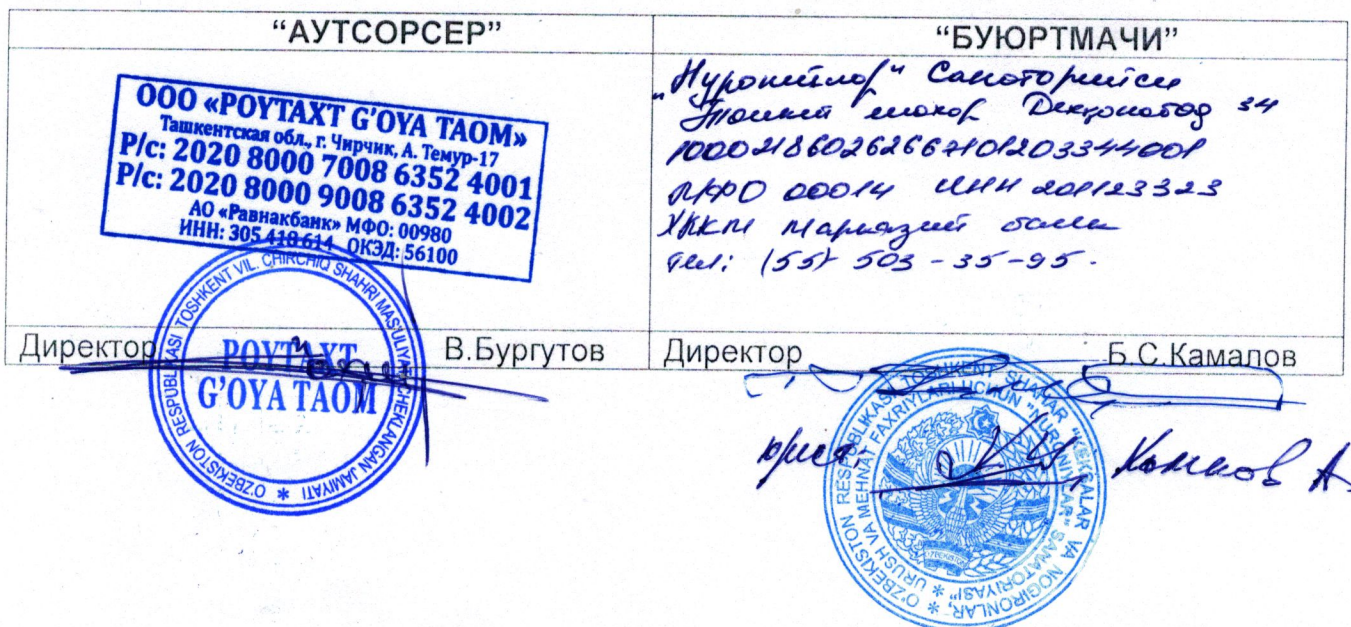 “АУТСОРСЕР”
“БУЮРТМАЧИ”
ООО «POYTAXT G’OYA TAOM»
Ташкентская обл., г. Чирчик, А. Темур-17
Р/с: 2020 8000 7008 6352 4001
Р/с: 2020 8000 9008 6352 4002
АО «Равнакбанк» МФО: 00980
ИНН: 305 418 614 ОКЭД: 56100
"Нуронийлар" Санаторийси
шахар 34
МФО 00014 ИНН 201123323
ХККМ Марказий банк
тел: (55) 503-35-95.
Директор В.Бургутов
Директор Б.С.Камалов
O‘ZBEKISTON RESPUBLIKASI TOSHKENT VIL. CHIRCHIQ SHAHRI MAS‘ULIYATI CHEKLANGAN JAMIYATI *
POYTAXT
G’OYA TAOM
O‘ZBEKISTON RESPUBLIKASI TOSHKENT SHAHAR "KEKSALAR VA NOGIRONLAR,
* URUSH VA MEHNAT FAXRIYLARI UCHUN "NURONIYLAR" SANATORIYASI" *
юрист